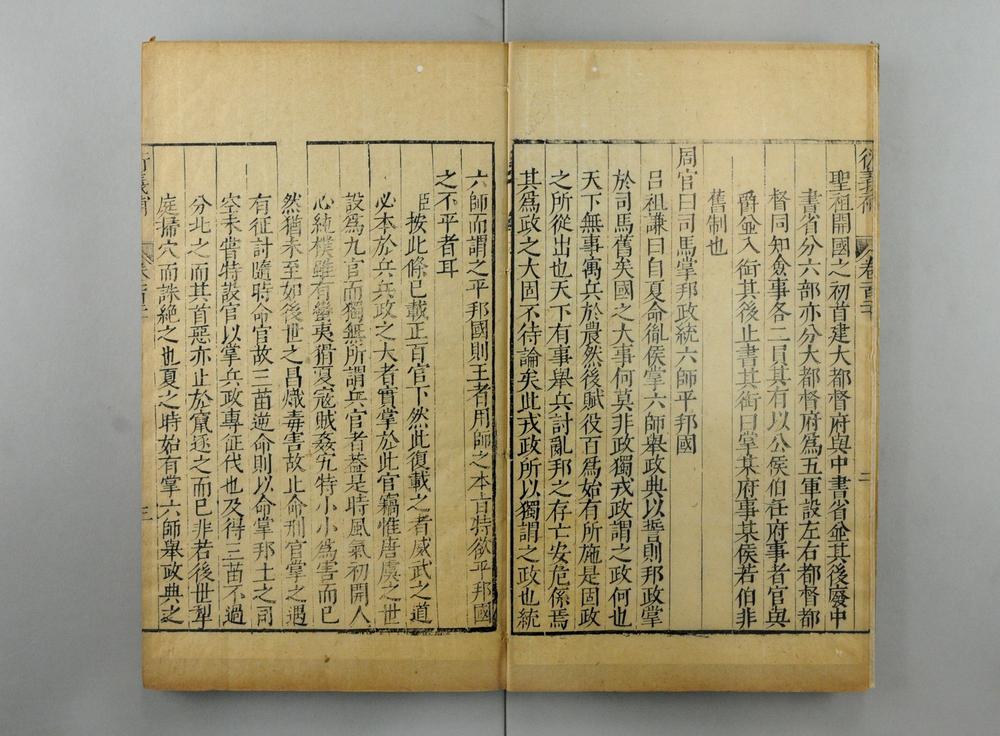 聖祖開國之初首建大都督府與中書省並其後廢中
書省分六部亦分大都督府爲五軍設左右都督都
督同知僉事各二員其有以公侯伯任府事者官與
爵並入銜其後止書其銜曰掌某府事某侯若伯非
舊制也
周官曰司馬掌邦政統六師平邦國
呂祖謙曰自夏命胤侯掌六師舉政典以誓則邦政掌
於司馬舊矣國之大事何莫非政獨戎政謂之政何也
天下無事寓兵於農然後賦役百爲始有所施是固政
之所從出也天下有事舉兵討亂邦之存亡安危係焉
其爲政之大固不待論矣此戎政所以獨謂之政也統
六師而謂之平邦國則王者用師之本旨特欲平邦國
之不平者耳
臣按此條已載正百官下然此復載之者威武之道
必本於兵兵政之大者實掌於此官竊惟唐虞之世
設爲九官而獨無所謂兵官者蓋是時風氣初開人
心純樸雖有蠻夷猾夏寇賊姦宄特小小爲害而已
然猶未至如後世之昌熾毒害故止命刑官掌之遇
有征討隨時命官故三苗逆命則以命掌邦土之司
空未嘗特設官以掌兵政專征伐也及得三苗不過
分北之而其首惡亦止於竄逐之而已非若後世犁
庭掃穴而誅絕之也夏之時始有掌六師舉政典之
衍義補
三